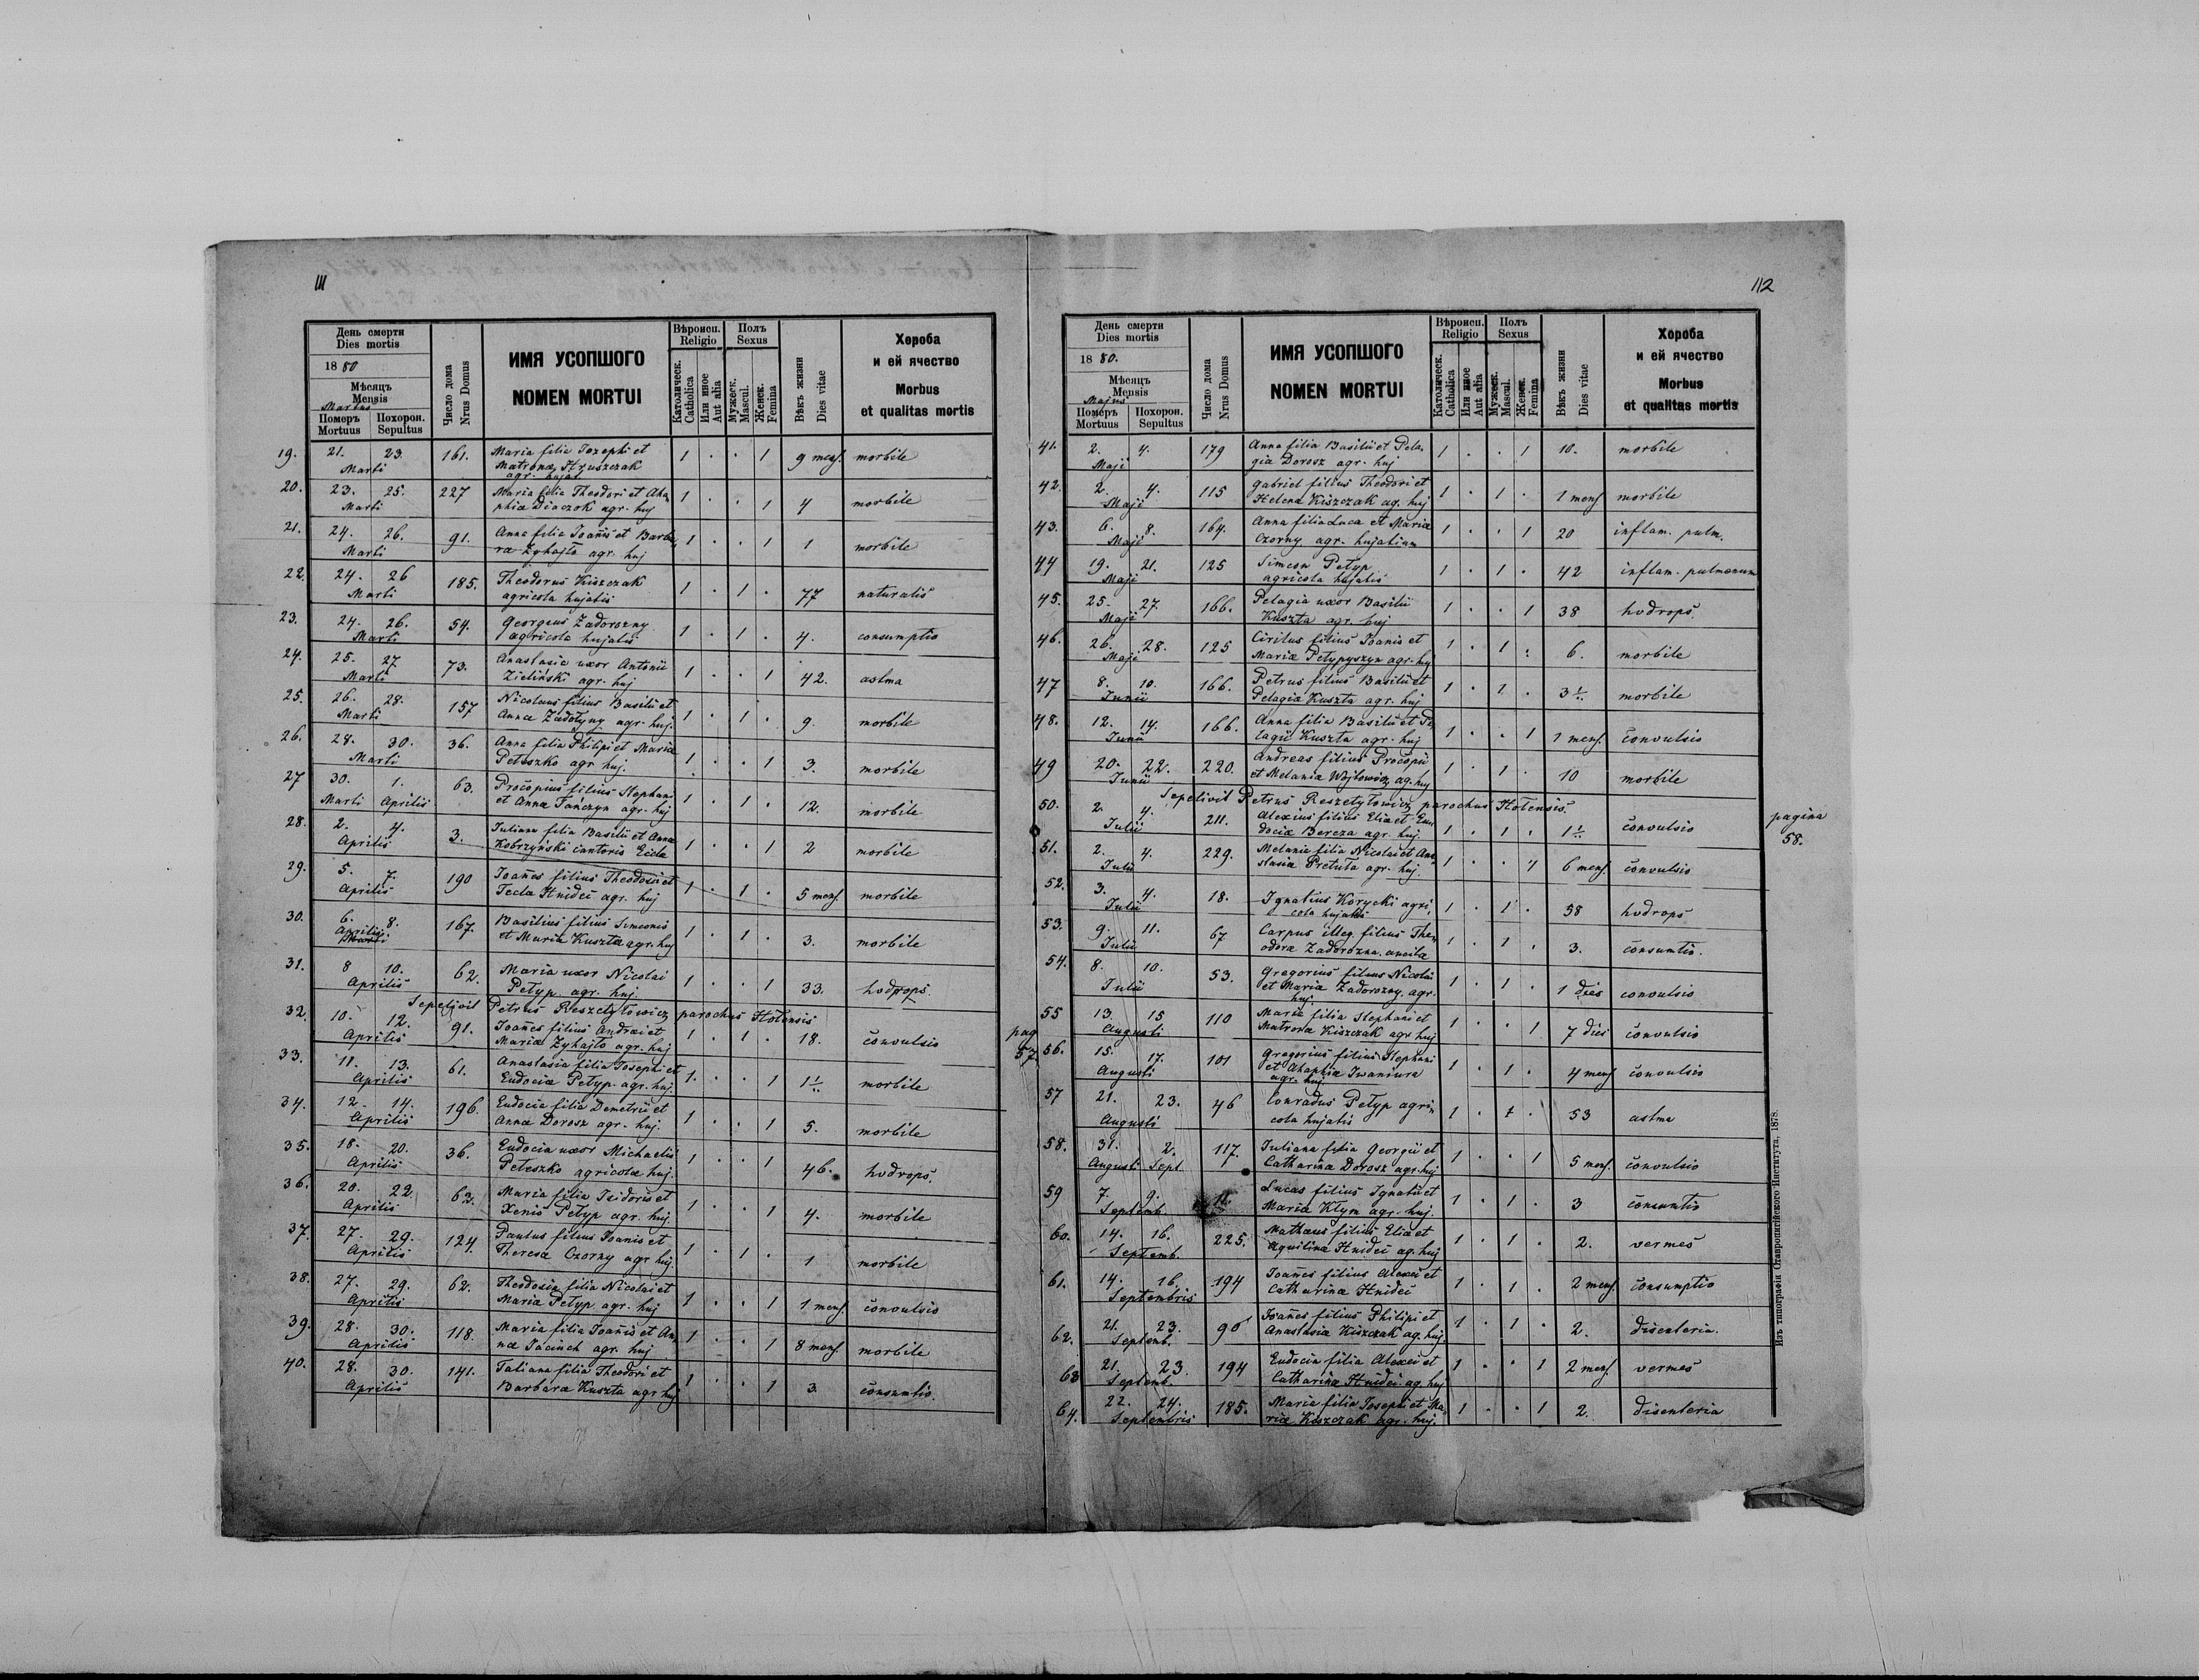 111
День смерти
Dies mortis
1880
Мѣсяцъ
Mensis
Martius
Померъ Похорон.
Mortuus Sepultus
Число дома
Nrus Domus
ИМЯ УСОПШОГО
NOMEN MORTUI
Вѣроисп.
Religio
Католическ.
Catholica
Или иное
Aut alia
Полъ
Sexus
Мужеск.
Mascul.
Женск.
Femina
Вѣкъ жизни
Dies vitae
Хороба
и ей ячество
Morbus
et qualitas mortis
19. 21. 23. 161. Maria filia Josephi et 1 . . 1 9 mens. morbile
Marti Matronæ Hruszczak
agr. hujat.
20. 23. 25. 227 Maria filia Theodori et Aha- 1 . . 1 4 morbile
Marti phiæ Diaczok agr. huj
21. 24. 26. 91. Anna filia Joañis et Barba- 1 . . 1 1 morbile
Marti ræ Zyhajło agr. huj
22. 24. 26 185. Theodorus Kiszczak 1 . 1 . 77 naturalis
Marti agricola hujatis
23. 24. 26. 54. Georgius Zadorozny 1 . 1 . 4. consumptio
Marti agricola hujatis
24. 25. 27 73. Anastasia uxor Antonii 1 . . 1 42. astma
Marti Zielinski agr. huj
25. 26. 28. 157 Nicolaus filius Basilii et 1 . 1 . 9. morbile
Marti Annæ Zadołyny agr. huj.
26. 28. 30. 36. Anna filia Philipi et Mariæ 1 . . 1 3. morbile
Marti Peteszko agr huj.
27 30. 1. 63. Procopius filius Stephani 1 . 1 . 12. morbile
Marti Aprilis et Annæ Tańczyn agr. huj
28. 2. 4. 3. Juliana filia Basilii et Annæ 1 . . 1 2 morbile
Aprilis Kobrzyński cantoris Eccle
29. 5. 7. 190 Joañes filius Theodosii et 1 . 1 . 5 mens. morbile
Aprilis Teclæ Hnidei agr. huj
30. 6. 8. 167. Basilius filius Simeonis 1 . 1 . 3. morbile
Aprilis et Mariæ Kuszta agr. huj
Marti
31. 8 10. 62. Maria uxor Nicolai 1 . . 1 33. hydrops.
Aprilis Petyp agr. huj
Sepelivit Petrus Reszetyłowicz parochus Hołensis
32. 10. 12. 91. Joañes filius Andreæ et 1 . 1 . 18. convulsio
Aprilis Mariæ Zyhajło agr. huj
33. 11. 13. 61. Anastasia filia Josephi et 1. . . 1 morbile
Aprilis Eudociæ Petyp agr. huj.
34. 12. 14. 196. Eudocia filia Demetrii et 1 . . 1 5. morbile
Aprilis Annæ Dorosz agr. huj.
35. 18. 20. 36. Eudocia uxor Michaelis 1 . . 1 46. hydrops.
Aprilis Peteszko agricolæ huj.
36. 20. 22. 62. Maria filia Isidoris et 1 . . 1 4. morbile
Aprilis Xenis Petyp agr. huj.
37. 27. 29. 124. Paulus filius Joanis et 1 . 1 . 1 morbile
Aprilis Theresæ Czorny agr huj.
38. 27. 29. 62. Theodosia filia Nicolai et 1 . . 1 1 mens. convulsio
Aprilis Mariæ Petyp agr. huj
39. 28. 30. 118. Maria filia Joañis et An- 1 . . 1 8 mens morbile
Aprilis næ Jacinch agr. huj
40. 28. 30. 141. Tatiana filia Theodori et 1 . . 1 3. consumtio.
Aprilis Barbaræ Kuszta agr huj
pag
57.
112
День смерти
Dies mortis
1880.
Мѣсяцъ
Mensis
Majus
Померъ Похорон.
Mortuus Sepultus
Число дома
Nrus Domus
ИМЯ УСОПШОГО
NOMEN MORTUI
Вѣроисп.
Religio
Католическ.
Catholica
Или иное
Aut alia
Полъ
Sexus
Мужеск.
Mascul.
Женск.
Femina
Вѣкъ жизни
Dies vitae
Хороба
и ей ячество
Morbus
et qualitas mortis
41. 2. 4. 179 Anna filia Basilii et Pela- 1 . . 1 10. morbile
Maji giæ Dorosz agr. huj
42. 2. 4. 115 Gabriel filius Theodori et 1 . 1 . 1 mens morbile
Maji Helenæ Kiszczak ag. huj
43. 6. 8. 164. Anna filia Luca et Mariæ 1 . . 1 20 inflam. pulm.
Maji Czorny agr. hujatium
44 19. 21. 125 Simeon Petyp 1 . 1 . 42 inflam. pulmonum
Maji agricola hujatis
45. 25. 27. 166. Pelagia uxor Basilii 1 . . 1 38 hydrops.
Maji Kuszta agr. huj
46. 26. 28. 125 Cirilus filius Joanis et 1 . 1 . 6. morbile
Maji Mariæ Petypyszyn agr. huj
47 8. 10. 166. Petrus filius Basilii et 1 . 1 . morbile
Junii Pelagiæ Kuszta agr. huj
48. 12. 14. 166. Anna filia Basilii et Pe- 1 . . 1 1 mens. convulsio
Junii lagii Kuszta agr. huj
49 20. 22. 220. Andreas filius Procopii 1 . 1 . 10 morbile
Junii et Melaniæ Wojtowicz ag. huj
Sepelivit Petrus Reszetyłowicz parochus Hołensis.
50. 2. 4. 211. Alexius filius Eliæ et Eu- 1 . 1 . convulsio
Julii dociæ Bereza agr. huj.
pagina
58.
51. 2. 4. 229. Melania filia Nicolai et Ana- 1 . . 1 6 mens. convulsio
Julii stasiæ Pretuła agr. huj.
52. 3. 4. 18. Ignatius Korycki agri- 1 . 1 . 58 hydrops
Julii cola hujatis
53. 9. 11. 67 Carpus illeg. filius The- 1 . 1 . 3. consumtio.
Julii odoræ Zadorozna. ancila
54. 8. 10. 53. Gregorius filius Nicolai 1 . 1 . 1 dies convulsio
Julii et Mariæ Zadorozny. agr.
huj.
55 13. 15 110 Maria filia Stephani et 1 . . 1 7 dies convulsio
Augusti Matronæ Kiszczak agr huj
56. 15. 17. 101 Gregorius filius Stephani 1 . 1 . 4 mens convulsio
Augusti et Ahaphiæ Iwaniura
agr. huj
57 21. 23. 46 Conradus Petyp agri- 1 . 1 . 53 astma
Augusti cola hujatis
58. 31. 2. 117. Juliana filia Georgii et 1 . . 1 5 mens. convulsio
Augusti Sept. Catharinæ Dorosz agr. huj
59 7. 9. Lucas filius Ignatii et 1 . 1 . 3 consumtio
Septemb. Mariæ Kłym agr. huj.
60. 14. 16. 225. Mathæus filius Eliæ et 1 . 1 . 2. vermes
Septemb. Aquilinæ Hnidei ag. huj
61. 14. 16. 194 Joañes filius Alexii et 1 . 1 . 2 mens. consumptio
Septembris Catharinæ Hnidei
62. 21. 23. 90 Joañes filius Philipi et 1 . 1 . 2. disenteria.
Septemb. Anastasiæ Kiszczak ag. huj.
63 21. 23. 194 Eudocia filia Alexei et 1 . . 1 2 mens. vermes
Septemb. Catharinæ Hnidei ag. huj
64. 22. 24. 185. Maria filia Josephi et Ma- 1 . . 1 2. disenteria
Septembris riæ Kiszczak agr. huj.
Изъ типографіи Ставропигійского Института, 1878.